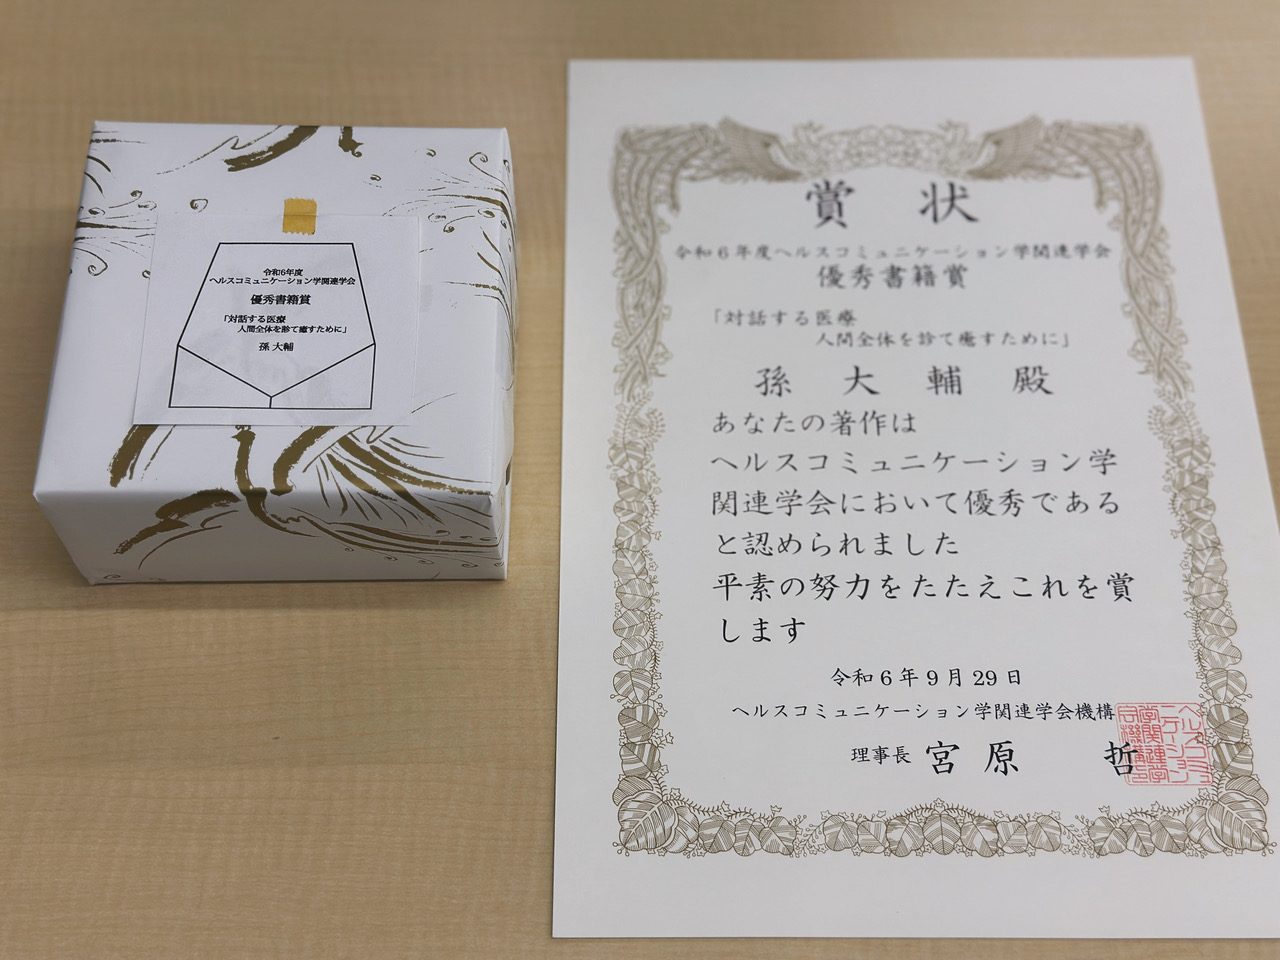 令和6年度
ヘルスコミュニケーション学関連学会
優秀書籍賞
「対話する医療
人間全体を診て癒すために」
孫 大輔
賞 状
令和6年度ヘルスコミュニケーション学関連学会
優秀書籍賞
「対話する医療
人間全体を診て癒すために」
孫 大 輔 殿
あなたの著作は
ヘルスコミュニケーション学
関連学会において優秀である
と認められました
平素の努力をたたえこれを賞
します
令和6年9月29日
ヘルスコミュニケーション学関連学会機構
理事長 宮原 哲
ヘルスコミュ
ニケーション
学関連学
会機構印